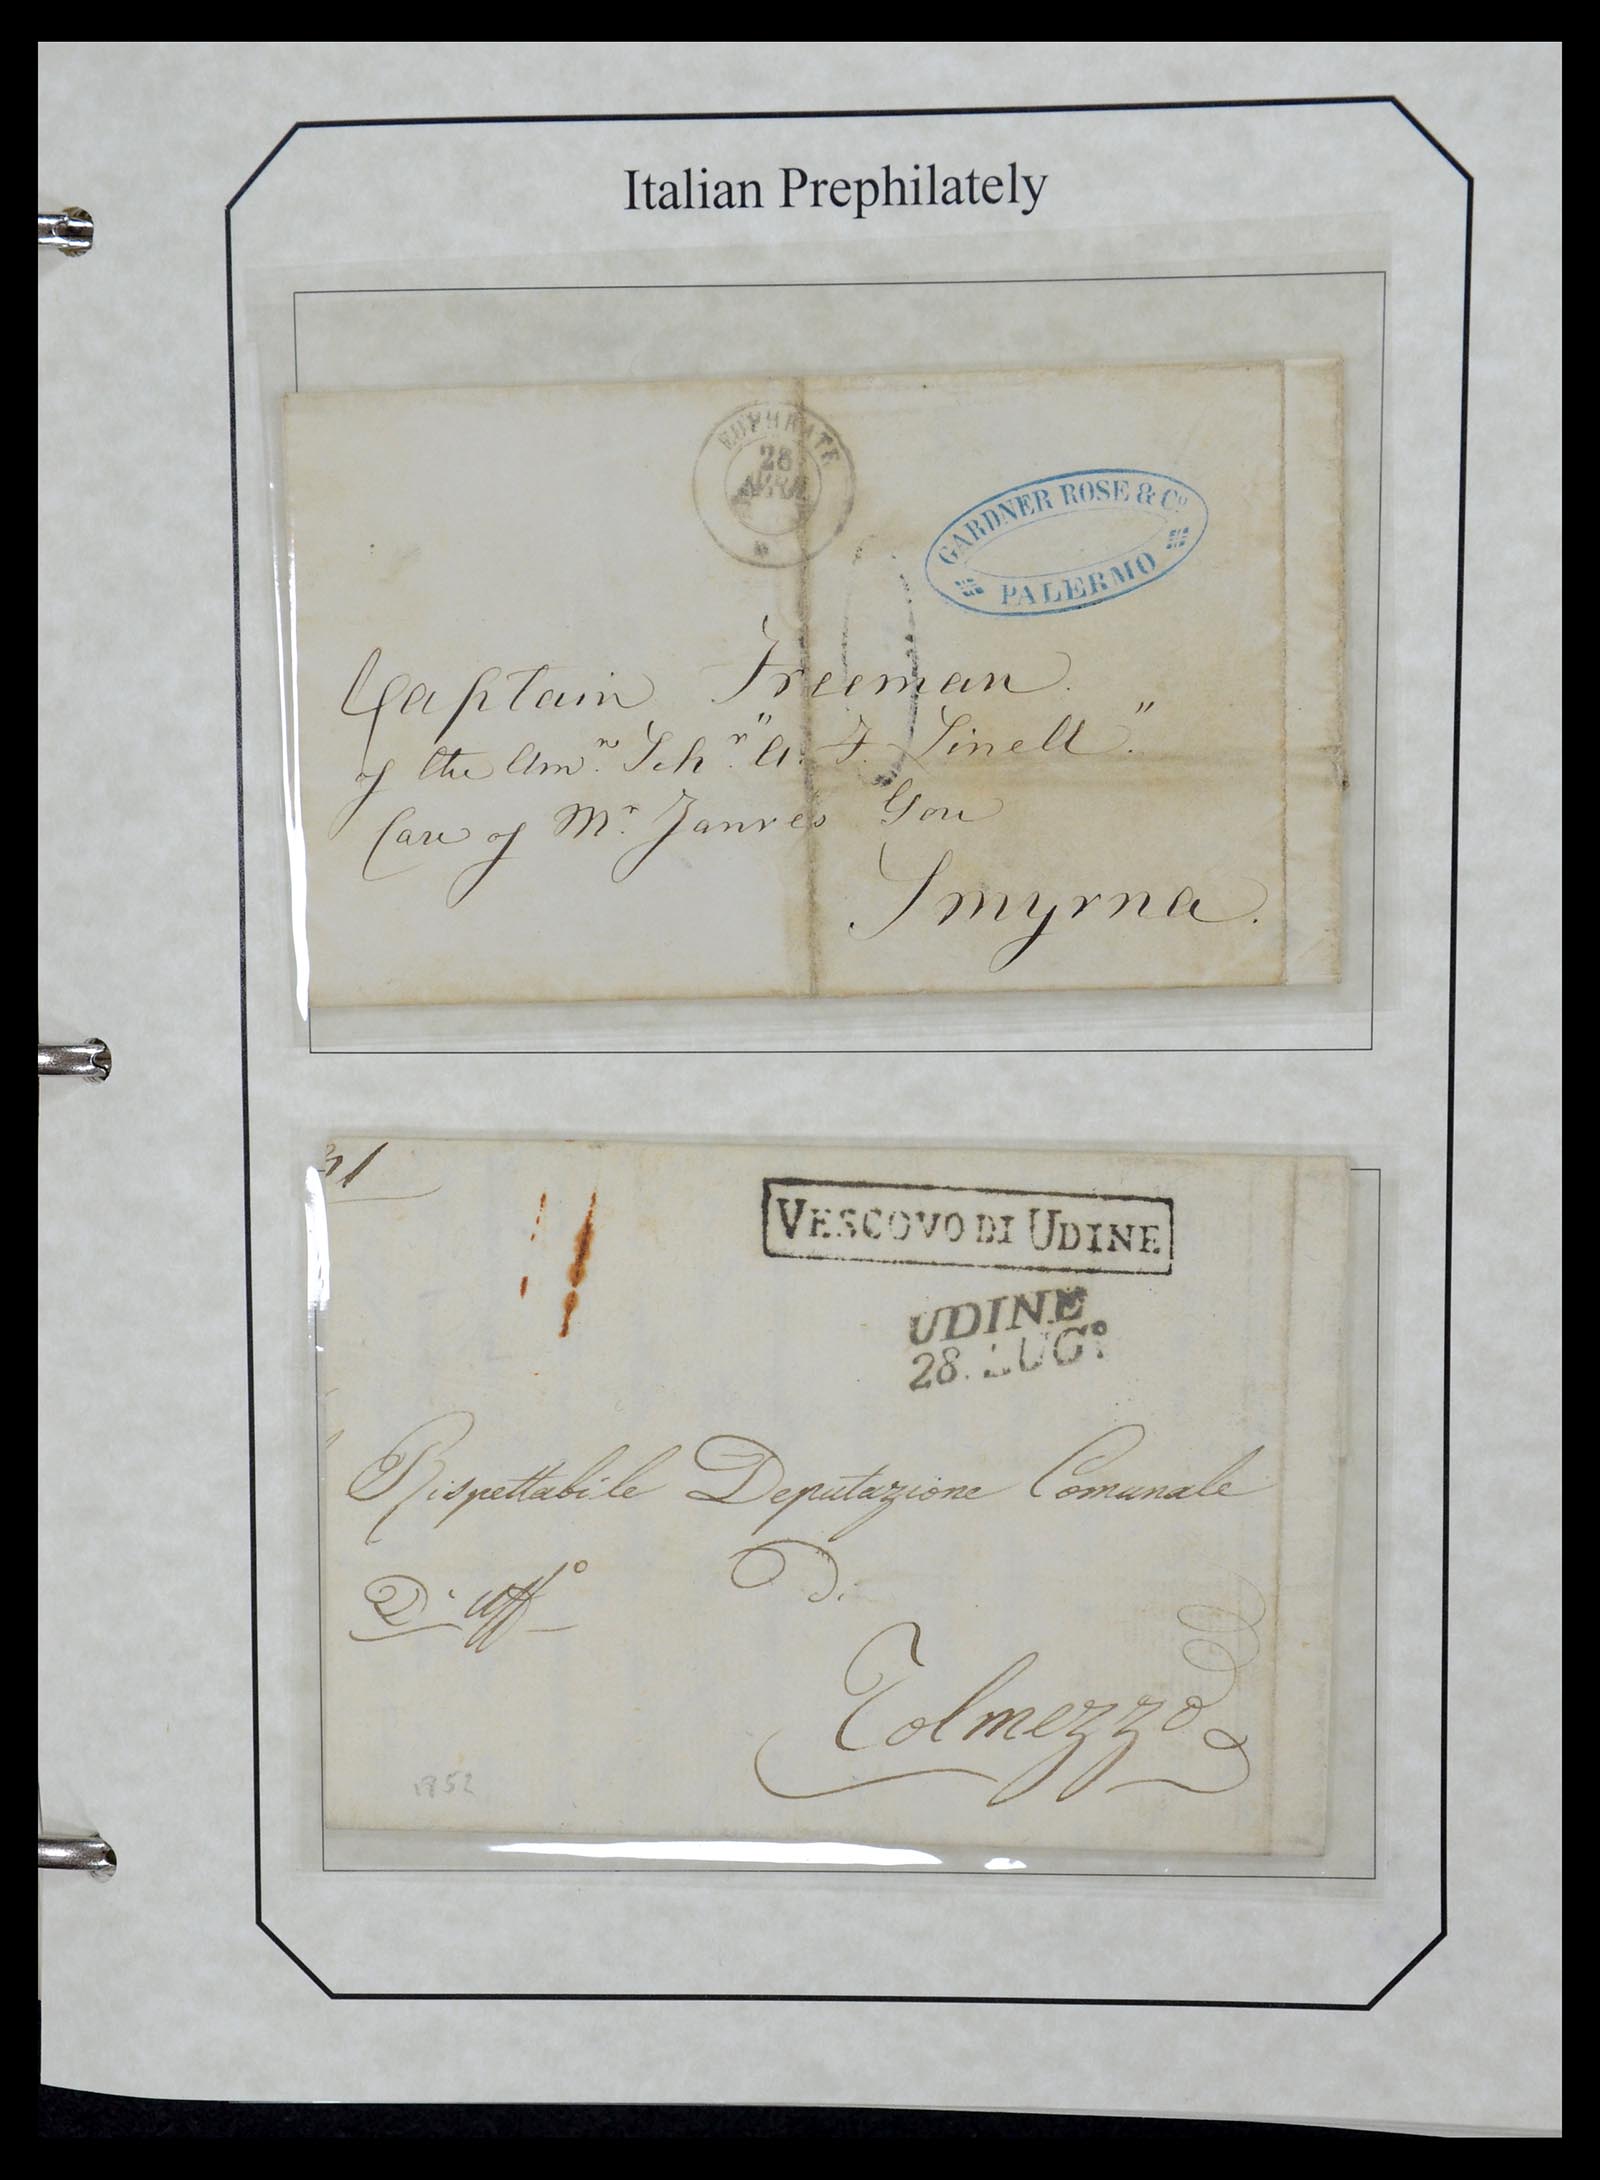 Italian Prephilately
EUPHRATE
28
GARDNER ROSE & Cº
PALERMO
Captain Freeman.
of the Amn. Schr. "A. F. Linell".
Care of Mr.
Smyrna.
31
VESCOVO DI UDINE
UDINE
28. LUGº
Rispettabile Deputazione Comunale
Di
D' Uffº
Tolmezzo
1852